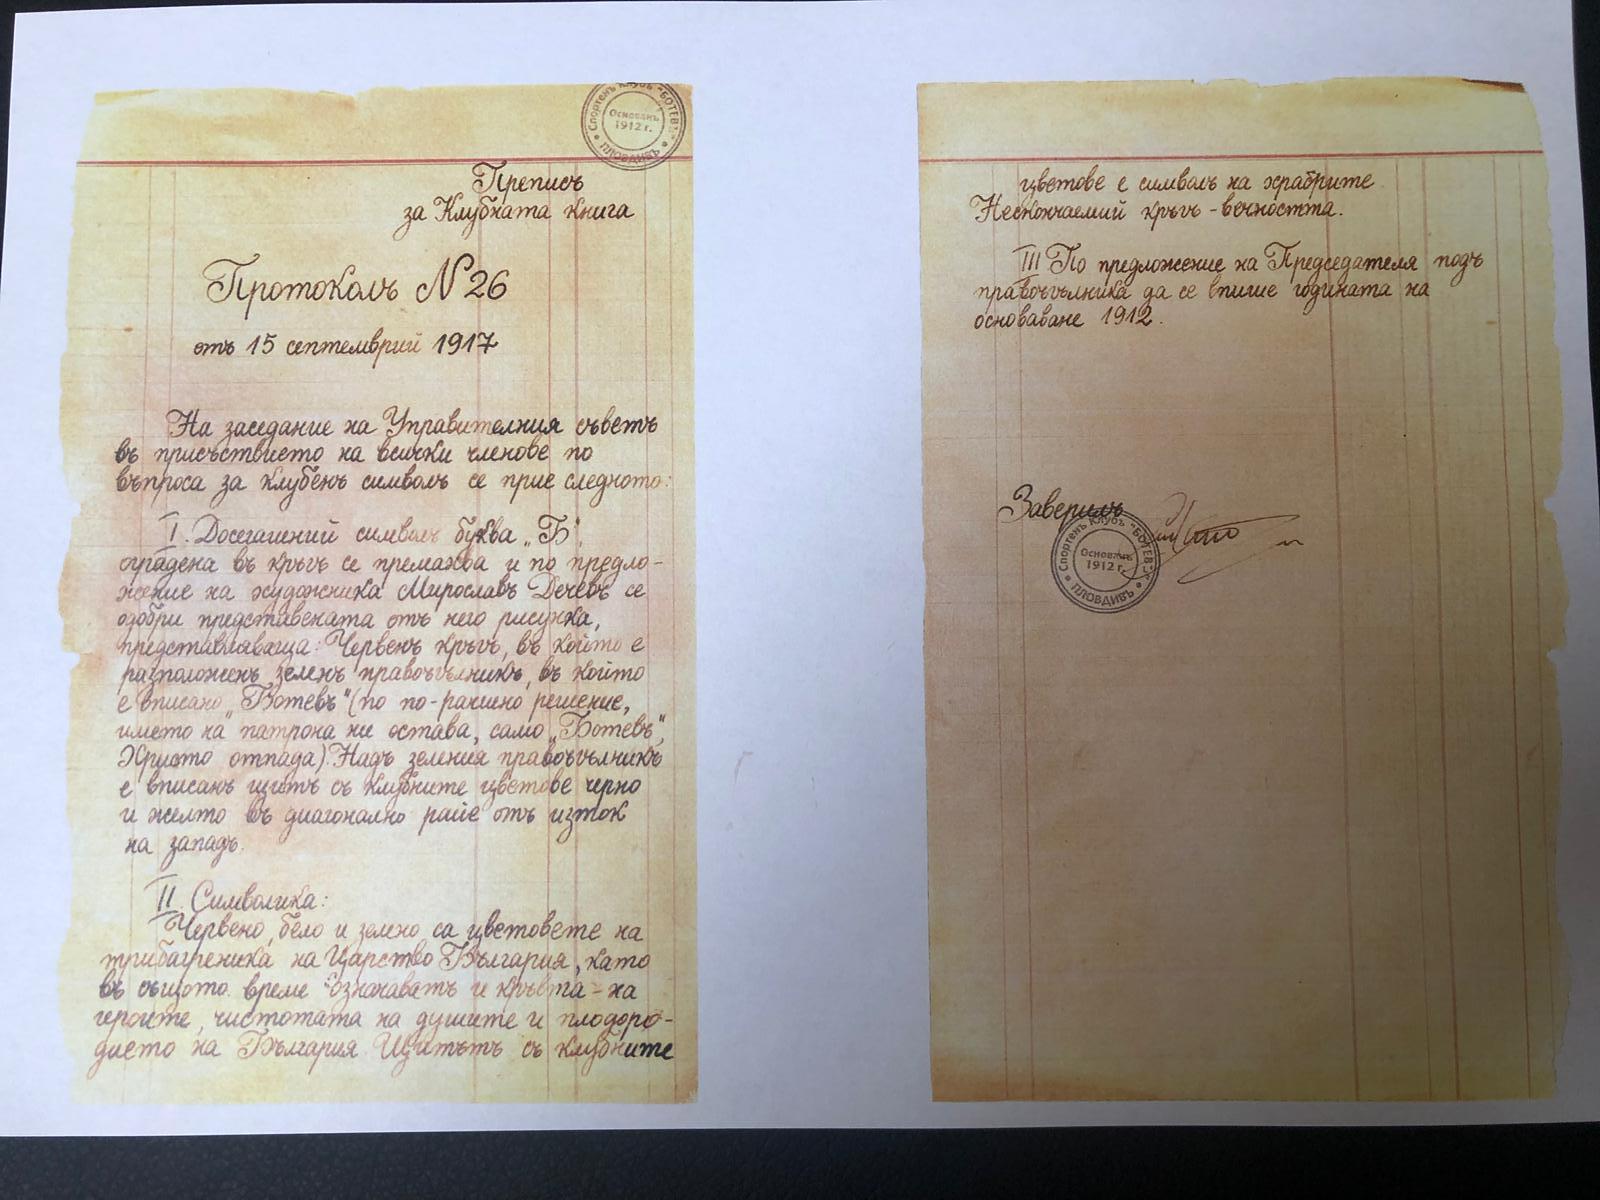 Спортенъ Клубъ "БОТЕВЪ"
Основанъ
1912 г.
ПЛОВДИВЪ
Преписъ
за Клубната книга
Протоколъ N 26
отъ 15 септемврий 1917
На заседание на Управителния съветъ
въ присъствието на всички членове по
въпроса за клубенъ символъ се прие следното:
I. Досегашний символъ буква „Б“,
оградена въ кръгъ се премахва и по предло-
жение на художника Мирославъ Дечевъ се
одобри представената отъ него рисунка,
представляваща: Червенъ кръгъ, въ който е
разположенъ зеленъ правоъгълникъ, въ който
е вписано „Ботевъ“ (по по-раншно решение,
името на патрона ни остава, само „Ботевъ“,
Христо отпада). Надъ зеления правоъгълникъ
е вписанъ щитъ съ клубните цветове черно
и желто въ диагонално райе отъ изток
на западъ.
II. Символика:
Червено, бело и зелено са цветовете на
трибагреника на Царство България, като
въ същото време означаватъ и кръвта - на
героите, чистотата на душите и плодоро-
дието на България. Щитътъ съ клубните
цветове е символъ на храбрите.
Нескончаемий кръгъ - вечността.
III По предложение на Председателя подъ
правоъгълника да се впише годината на
основаване 1912.
Заверилъ
Спортенъ Клубъ "БОТЕВЪ"
Основанъ
1912 г.
ПЛОВДИВЪ